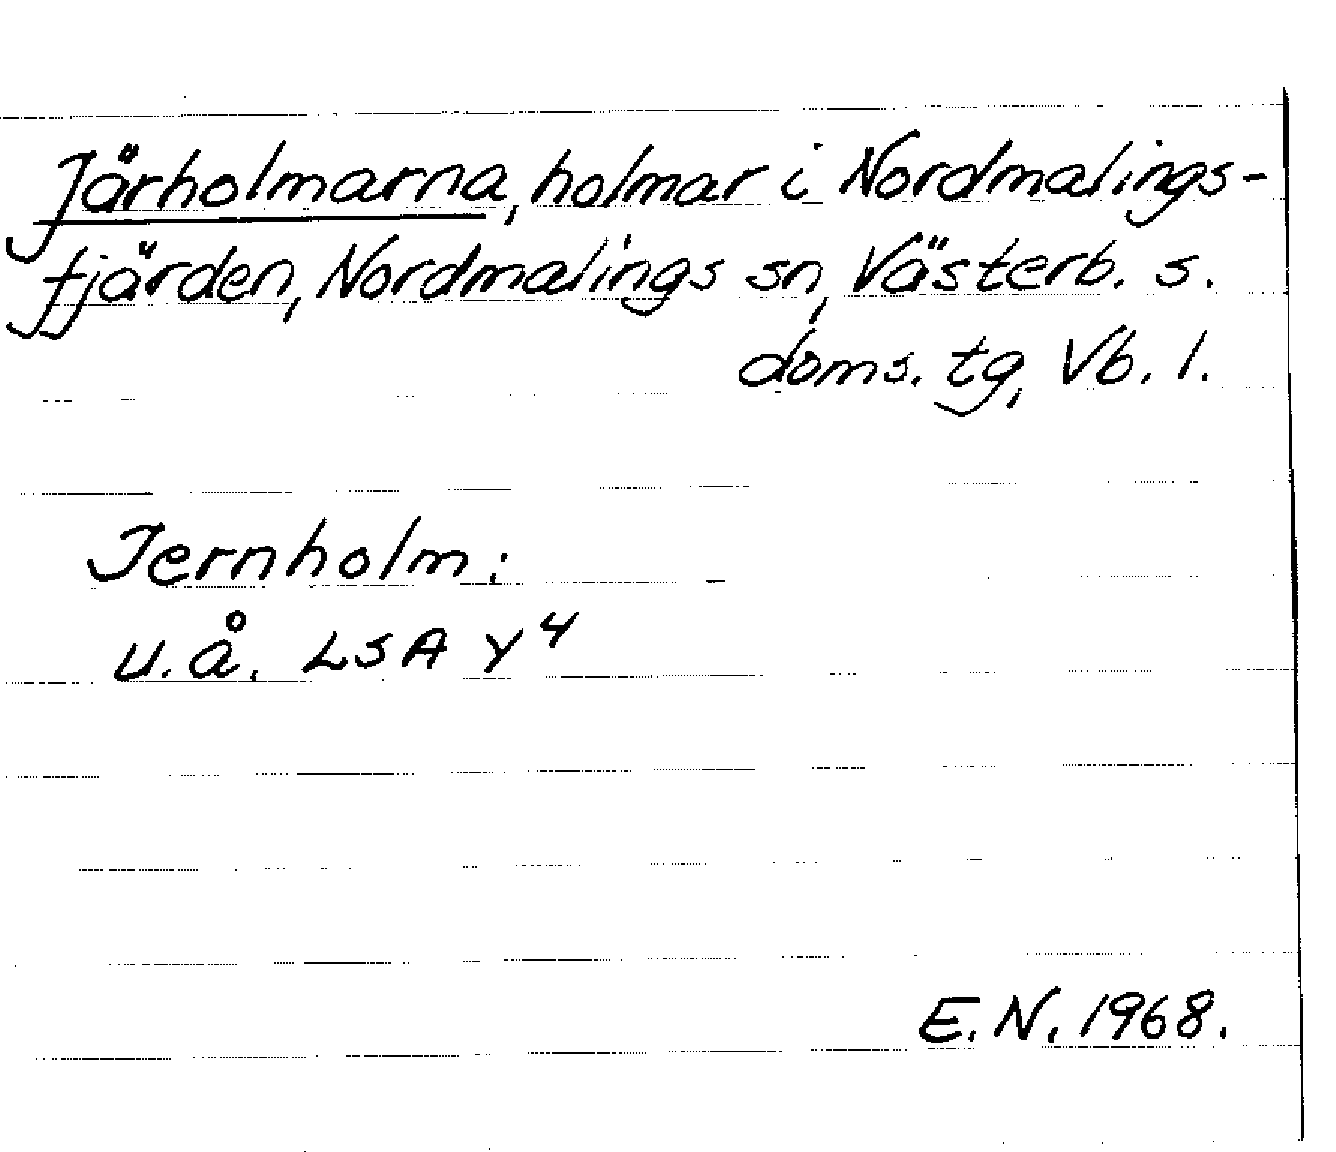 Järholmarna, holmar i Nordmalings-
fjärden, Nordmalings sn, Västerb. s.
doms. tg, Vb. l.
Jernholm:
u.å. LSA Y4
E.N. 1968.